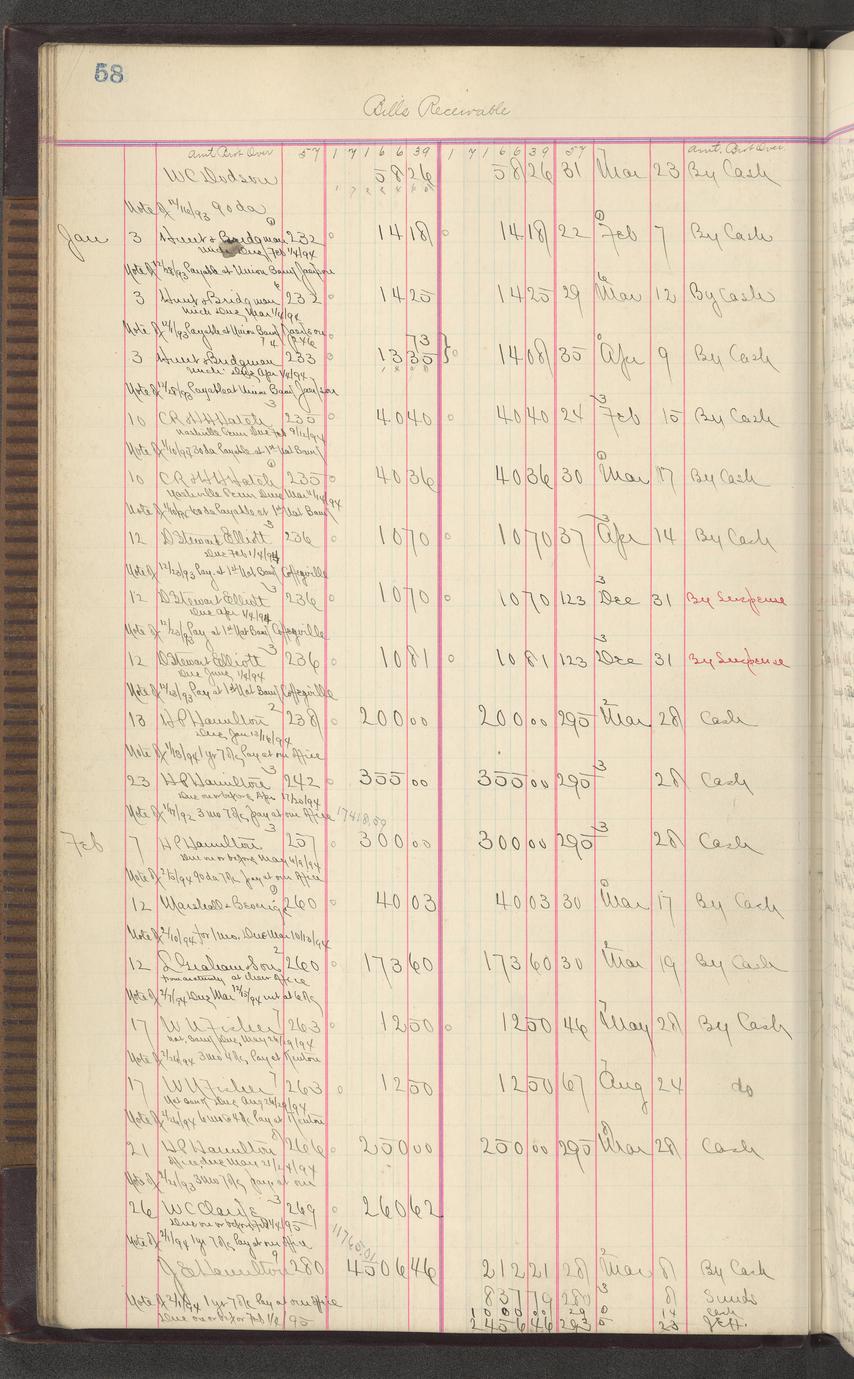 58
Bills Receivable
Amt. Brot Over 57 1 7 1 6 6 39 1 7 1 6 6 39 57 Amt. Brot Over
W C Dodson 58 26 58 26 31 Mar 23 By Cash
Note of 12/16/93 90 da
Jan 3 Hunt & Bridgman 232 14 18 14 18 22 Feb 7 By Cash
Mich Due Feb 1/4/94
Note of 12/28/93 Payable at Union Bank Jackson
3 Hunt & Bridgman 232 14 25 14 25 29 Mar 12 By Cash
Mich Due Mar 1/4/94
Payable at Union Bank Jackson
73
3 Hunt & Bridgman 233 13 35 14 08 35 Apr 9 By Cash
Mich Due Apr 1/4/94
Note of 12/28/93 Payable at Union Bank Jackson
10 C R & H H Hatch 235 40 40 40 40 24 Feb 15 By Cash
Nashville Due Feb 9/12/94
Note of 1/10/93 30 da Payable at 1st Nat Bank
10 C R & H H Hatch 235 40 36 40 36 30 Mar 17 By Cash
Nashville Due Mar
60 da Payable at 1st Nat Bank
12 D Stewart Elliott 236 10 70 10 70 37 Apr 14 By Cash
Due Feb 1/4/94
Note of 12/23/93 Pay. at 1st Nat Bank Coffeyville
12 D Stewart Elliott 236 10 70 10 70 123 Dec 31 By Suspense
Due Apr 1/4/94
Note of 12/23/93 Pay at 1st Nat Bank Coffeyville
12 D Stewart Elliott 236 10 81 10 81 123 Dec 31 By Suspense
Due June 1/4/94
Note of Pay at 1st Nat Bank Coffeyville
13 H P Hamilton 238 200 00 200 00 295 Mar 28 Cash
Due Jan 13/16/94
Note of 1/13/94 1 yr 7% Pay at our Office
23 H P Hamilton 242 355 00 355 00 295 28 Cash
Due on or before Apr 17/20/94
3 mo 7% pay at our Office 17418.59
Feb 7 H P Hamilton 257 300 00 300 00 295 28 Cash
Due on or before May 6/9/94
Note of 2/5/94 90 da 7% pay at our Office
12 Marshall & 260 40 03 40 03 30 Mar 17 By Cash
Note of 2/10/94 for 1 mo. Due Mar 10/13/94
12 L Graham & Son 260 173 60 173 60 30 Mar 19 By Cash
from maturity at their Office
Note of 2/7/94 Due Mar 12/15/94 int at 6%
17 W N Fisher 263 12 50 12 50 46 May 28 By Cash
Nat. Bank Due May 26/29/94
Note of 2/26/94 3 mo 4% Pay at Kenton
17 W N Fisher 263 12 50 12 50 67 Aug 24 do
Nat Bank Due Aug 26/29/94
Note of 2/26/94 6 mo 4% Pay at Kenton
21 H P Hamilton 266 250 00 250 00 295 Mar 28 Cash
Office due May 21/24/94
Note of 2/21/93 3 mo 7% pay at our
26 W C 269 260 62
Due on or before Feb 1/4/95
Note of 2/1/94 1 yr 7% Pay at our Office
11765.01
J E Hamilton 280 4506 46 212 21 28 Mar 8 By Cash
837 79 280 8 Sunds
Note of 1 yr 7% Pay at our Office 1000 00 29 14 Cash
Due on or before Feb 1/4/95 2456 46 293 23 J E H.